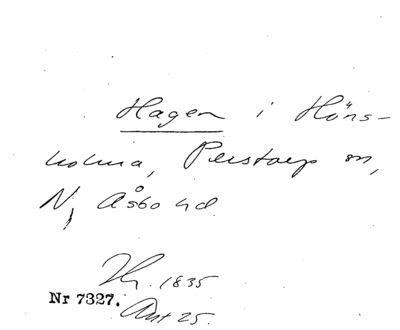 Hagen i Höns-
holma, Perstorp sn,
N, Åsbo hd.
1835
Nr 7327. Akt 25.